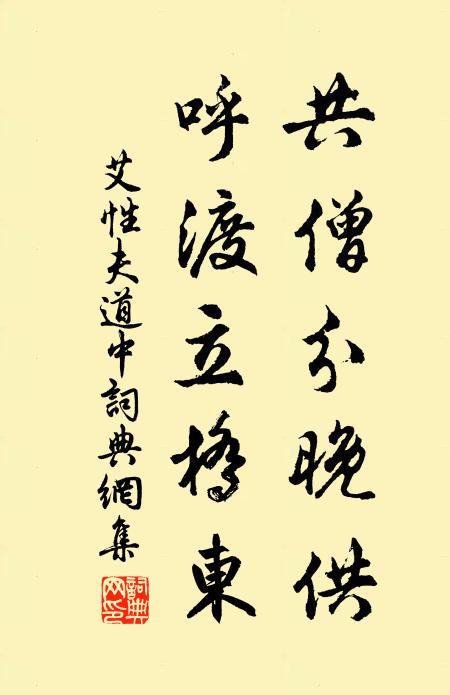 共僧分晚供
呼渡立橋東
艾性夫道中詞典網集
詞典網印